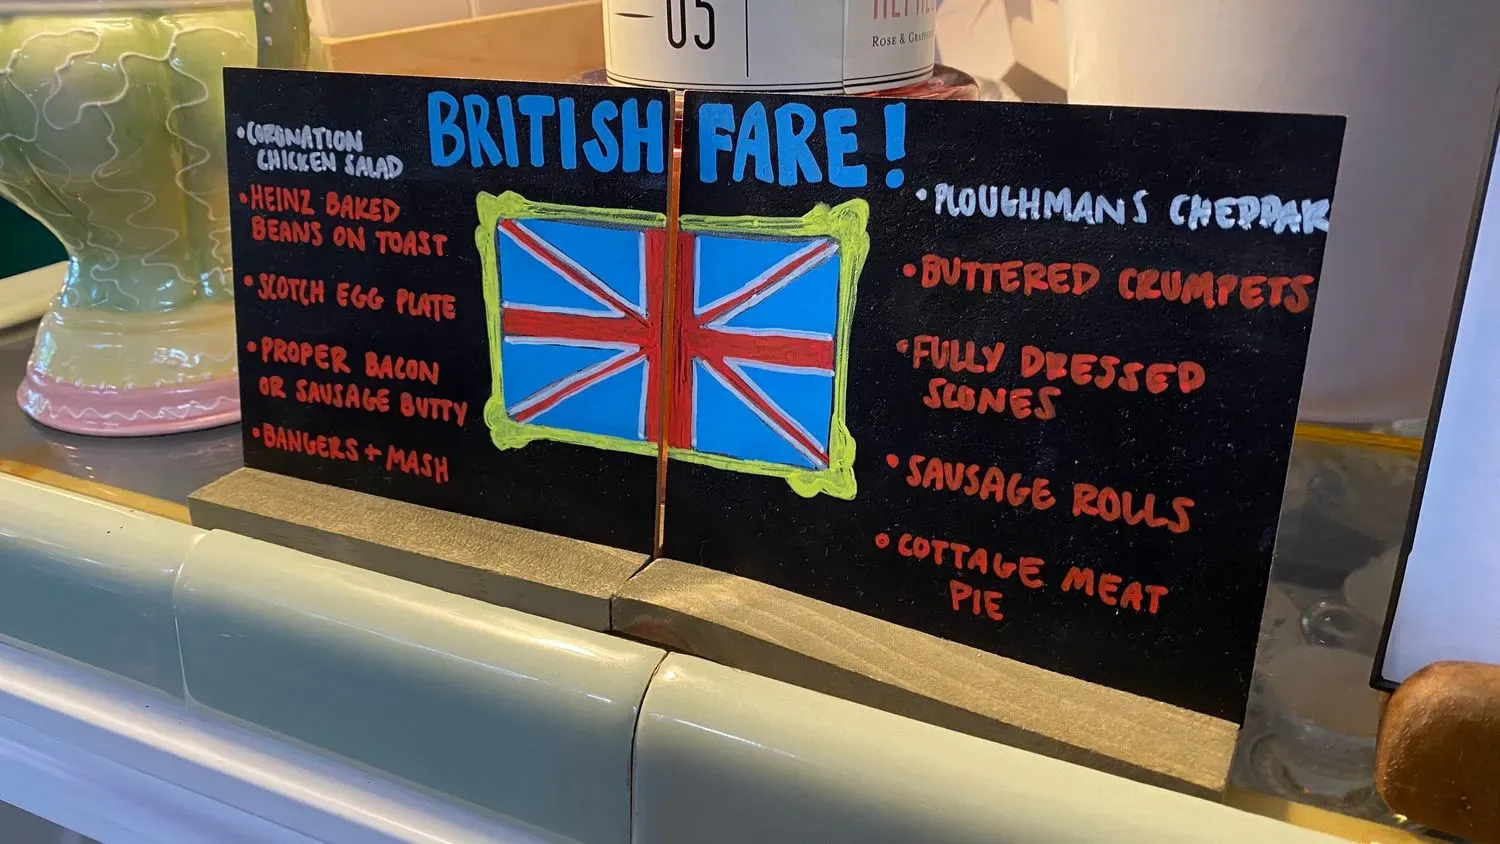 05
ROSE &
BRITISH FARE!
• CORONATION
CHICKEN SALAD
• HEINZ BAKED
BEANS ON TOAST
• SCOTCH EGG PLATE
• PROPER BACON
OR SAUSAGE BUTTY
• BANGERS + MASH
• PLOUGHMANS CHEDDAR
• BUTTERED CRUMPETS
• FULLY DRESSED
SCONES
• SAUSAGE ROLLS
• COTTAGE MEAT
PIE